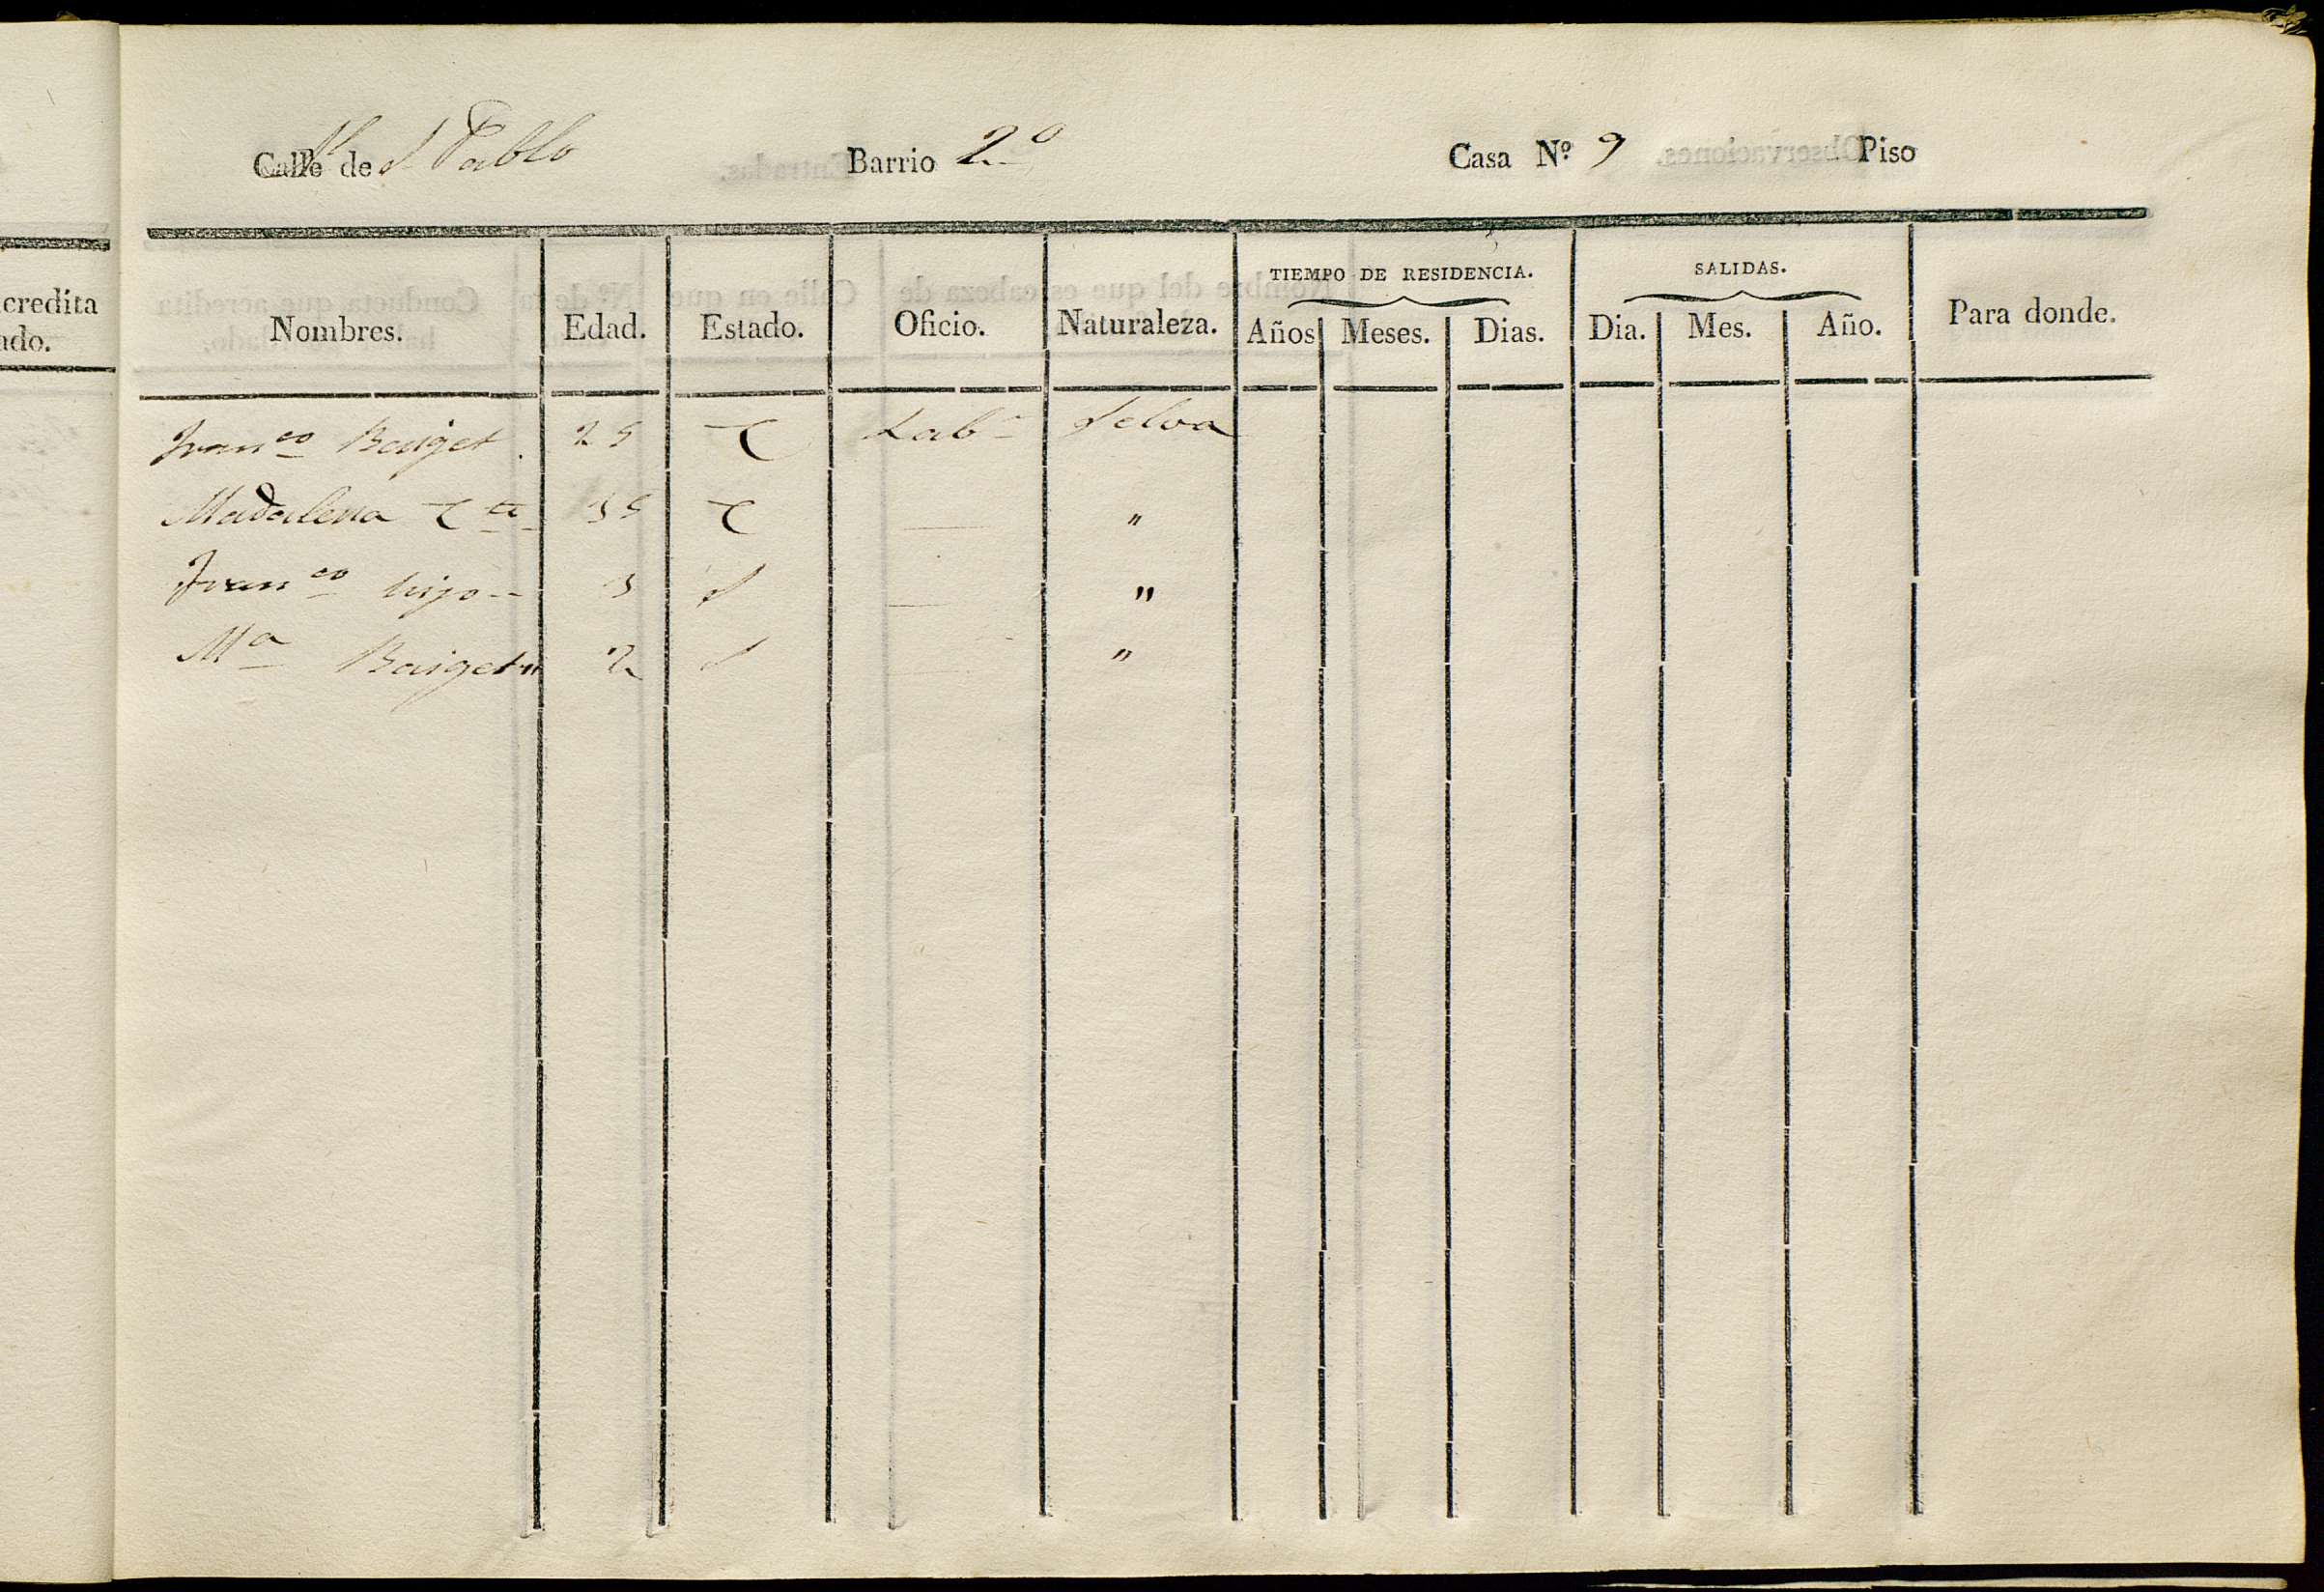 Calle de S. Pablo Barrio 2.º Casa Nº 9 Piso
TIEMPO DE RESIDENCIA. SALIDAS.
Nombres. Edad. Estado. Oficio. Naturaleza. Años Meses. Dias. Dia. Mes. Año. Para donde.
Franco Baiget. 25 C Labr Selva
Madalena C 35 C "
Franco hijo 3 S "
Ma Baiget 2 S "
credita
ado.